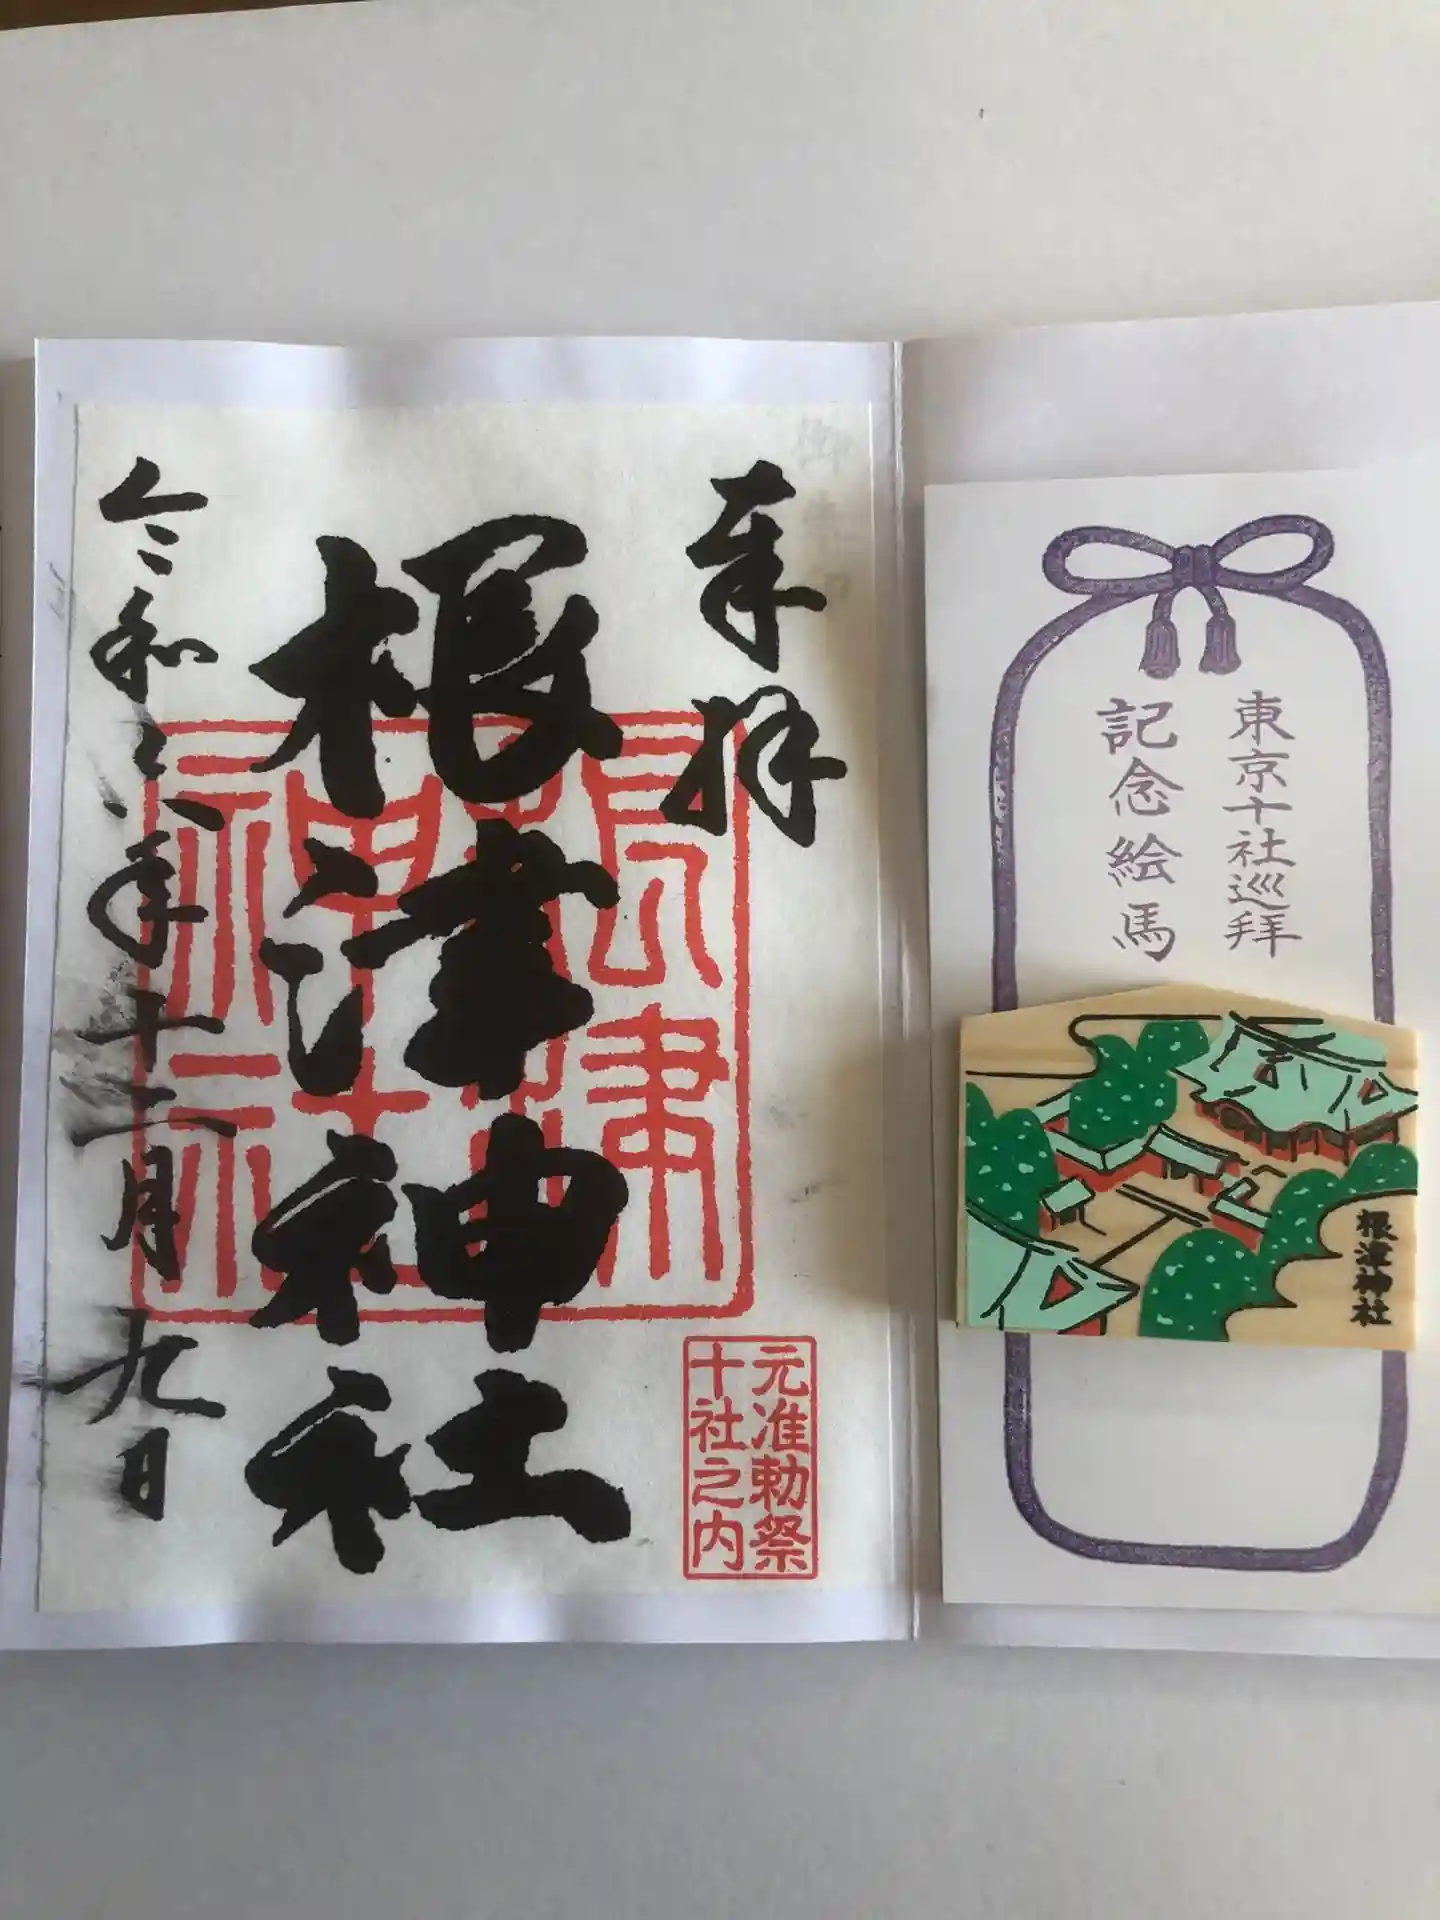 奉拝
根津神社
令和六年十二月九日
根津
神社
元准勅祭
十社之内
東京十社巡拜
記念絵馬
根津神社